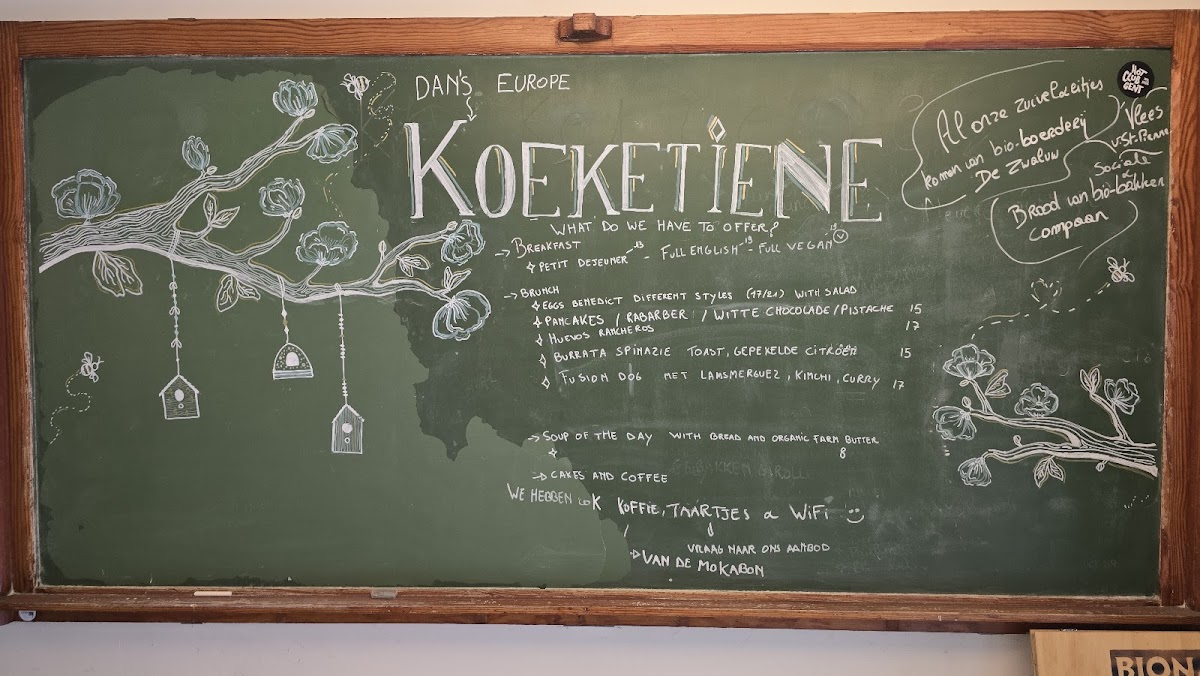 DAN'S EUROPE
KOEKETIENE
WHAT DO WE HAVE TO OFFER?
→ BREAKFAST
PETIT DEJEUNER 13 - FULL ENGLISH 19 - FULL VEGAN 19 V
→ BRUNCH
EGGS BENEDICT DIFFERENT STYLES (17/21) WITH SALAD
PANCAKES / RABARBER / WITTE CHOCOLADE/PISTACHE 15
HUEVOS RANCHEROS 17
BURRATA SPINAZIE TOAST, GEPEKELDE CITROEN 15
FUSION DOG MET LAMSMERGUEZ, KIMCHI, CURRY 17
→ SOUP OF THE DAY WITH BREAD AND ORGANIC FARM BUTTER
8
→ CAKES AND COFFEE
WE HEBBEN OOK KOFFIE, TAARTJES & WIFI
VRAAG NAAR ONS AANBOD
→ VAN DE MOKABON
Al onze zuivelaeitjes
komen van bio-boerderij
De Zwaluw
HOT
CLUB
GENT
Vlees
v. St. Pierre
Sociale
&
Brood van bio-bakken
compaan
BION